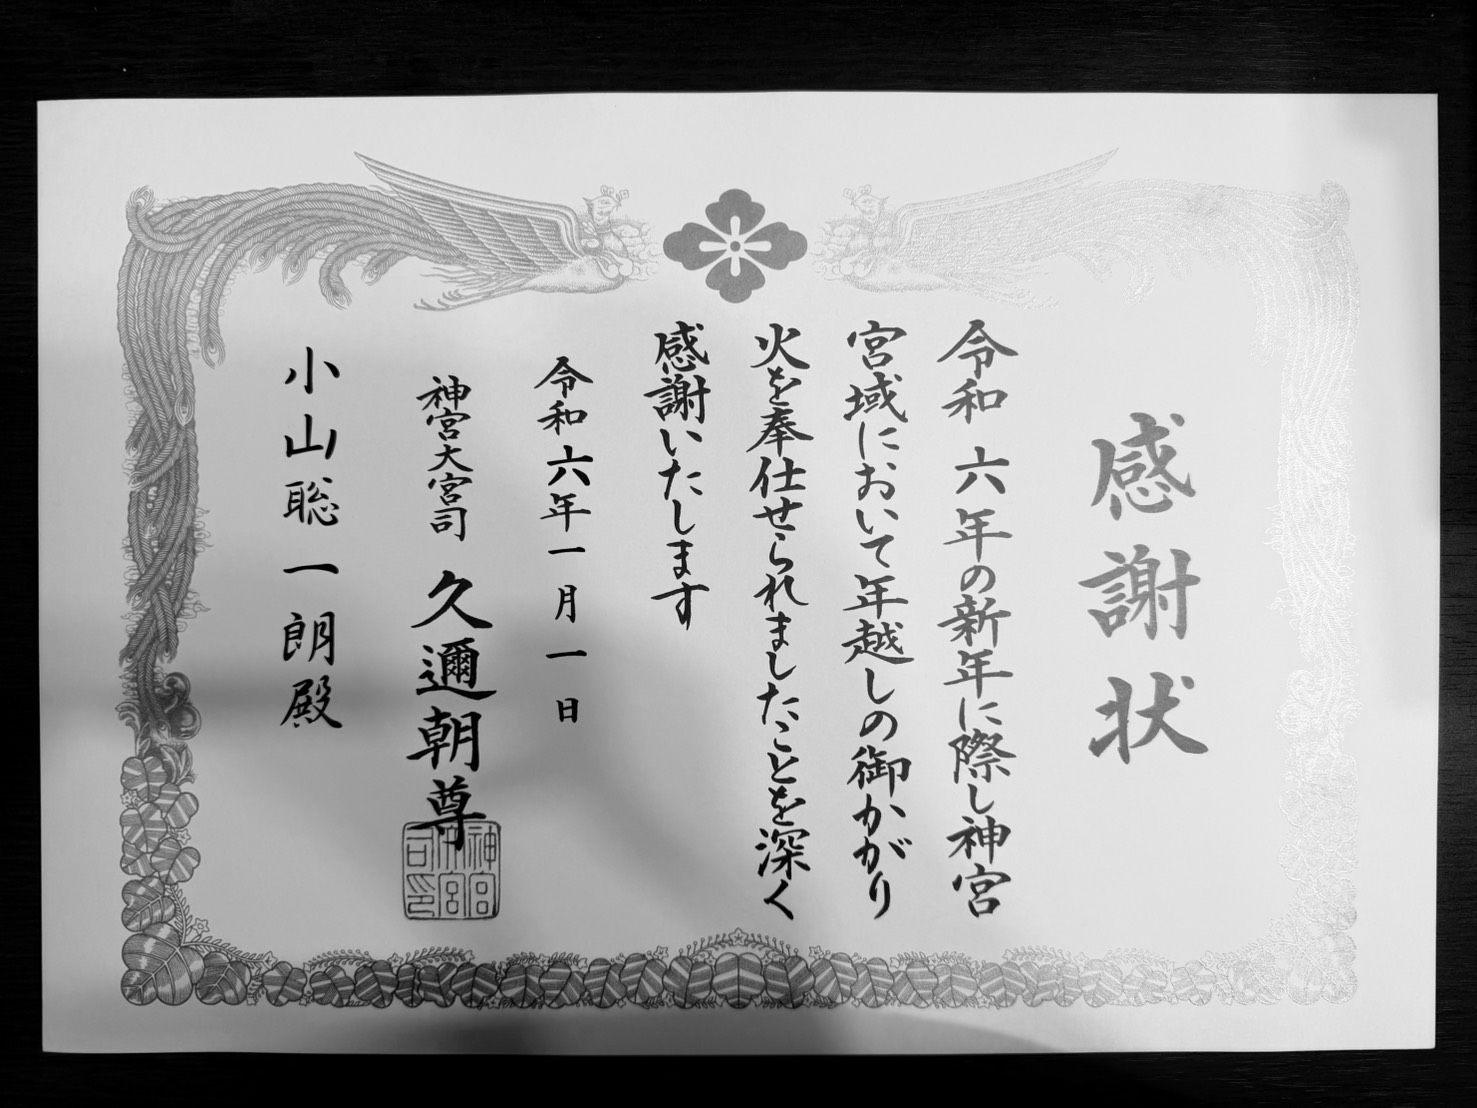 感謝状
令和六年の新年に際し神宮
宮域において年越しの御かがり
火を奉仕せられましたことを深く
感謝いたします
令和六年一月一日
神宮大宮司 久邇朝尊
神宮大宮司印
小山聡一朗殿